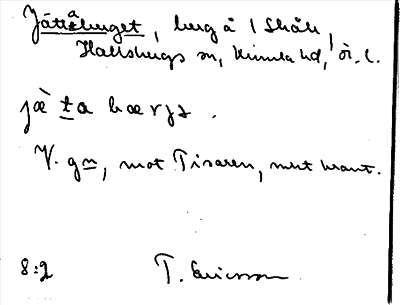 Jättåberget, berg å 1 Skåle,
Hallsbergs sn, Kumla hd, ör. l.
jæ̀ ta bærjɜ.
V. gn, mot Tisaren, mkt brant.
8:2 T. Ericsson